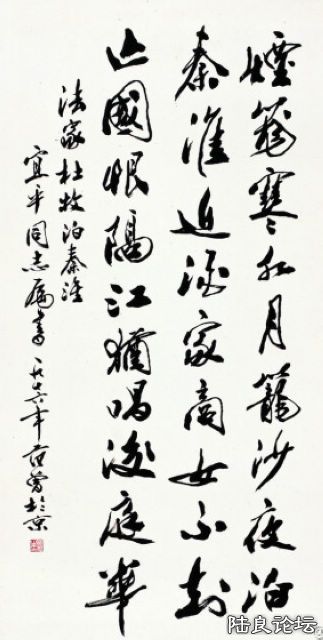 煙籠寒水月籠沙夜泊
秦淮近酒家商女不知
亡國恨隔江猶唱後庭華
法家杜牧泊秦淮
宜平同志属書一九七六年范曾於京
陆良论坛